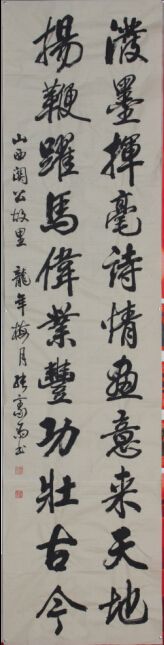 泼墨揮毫詩情畫意来天地
揚鞭躍馬偉業豐功壯古今
山西關公故里 龍年梅月